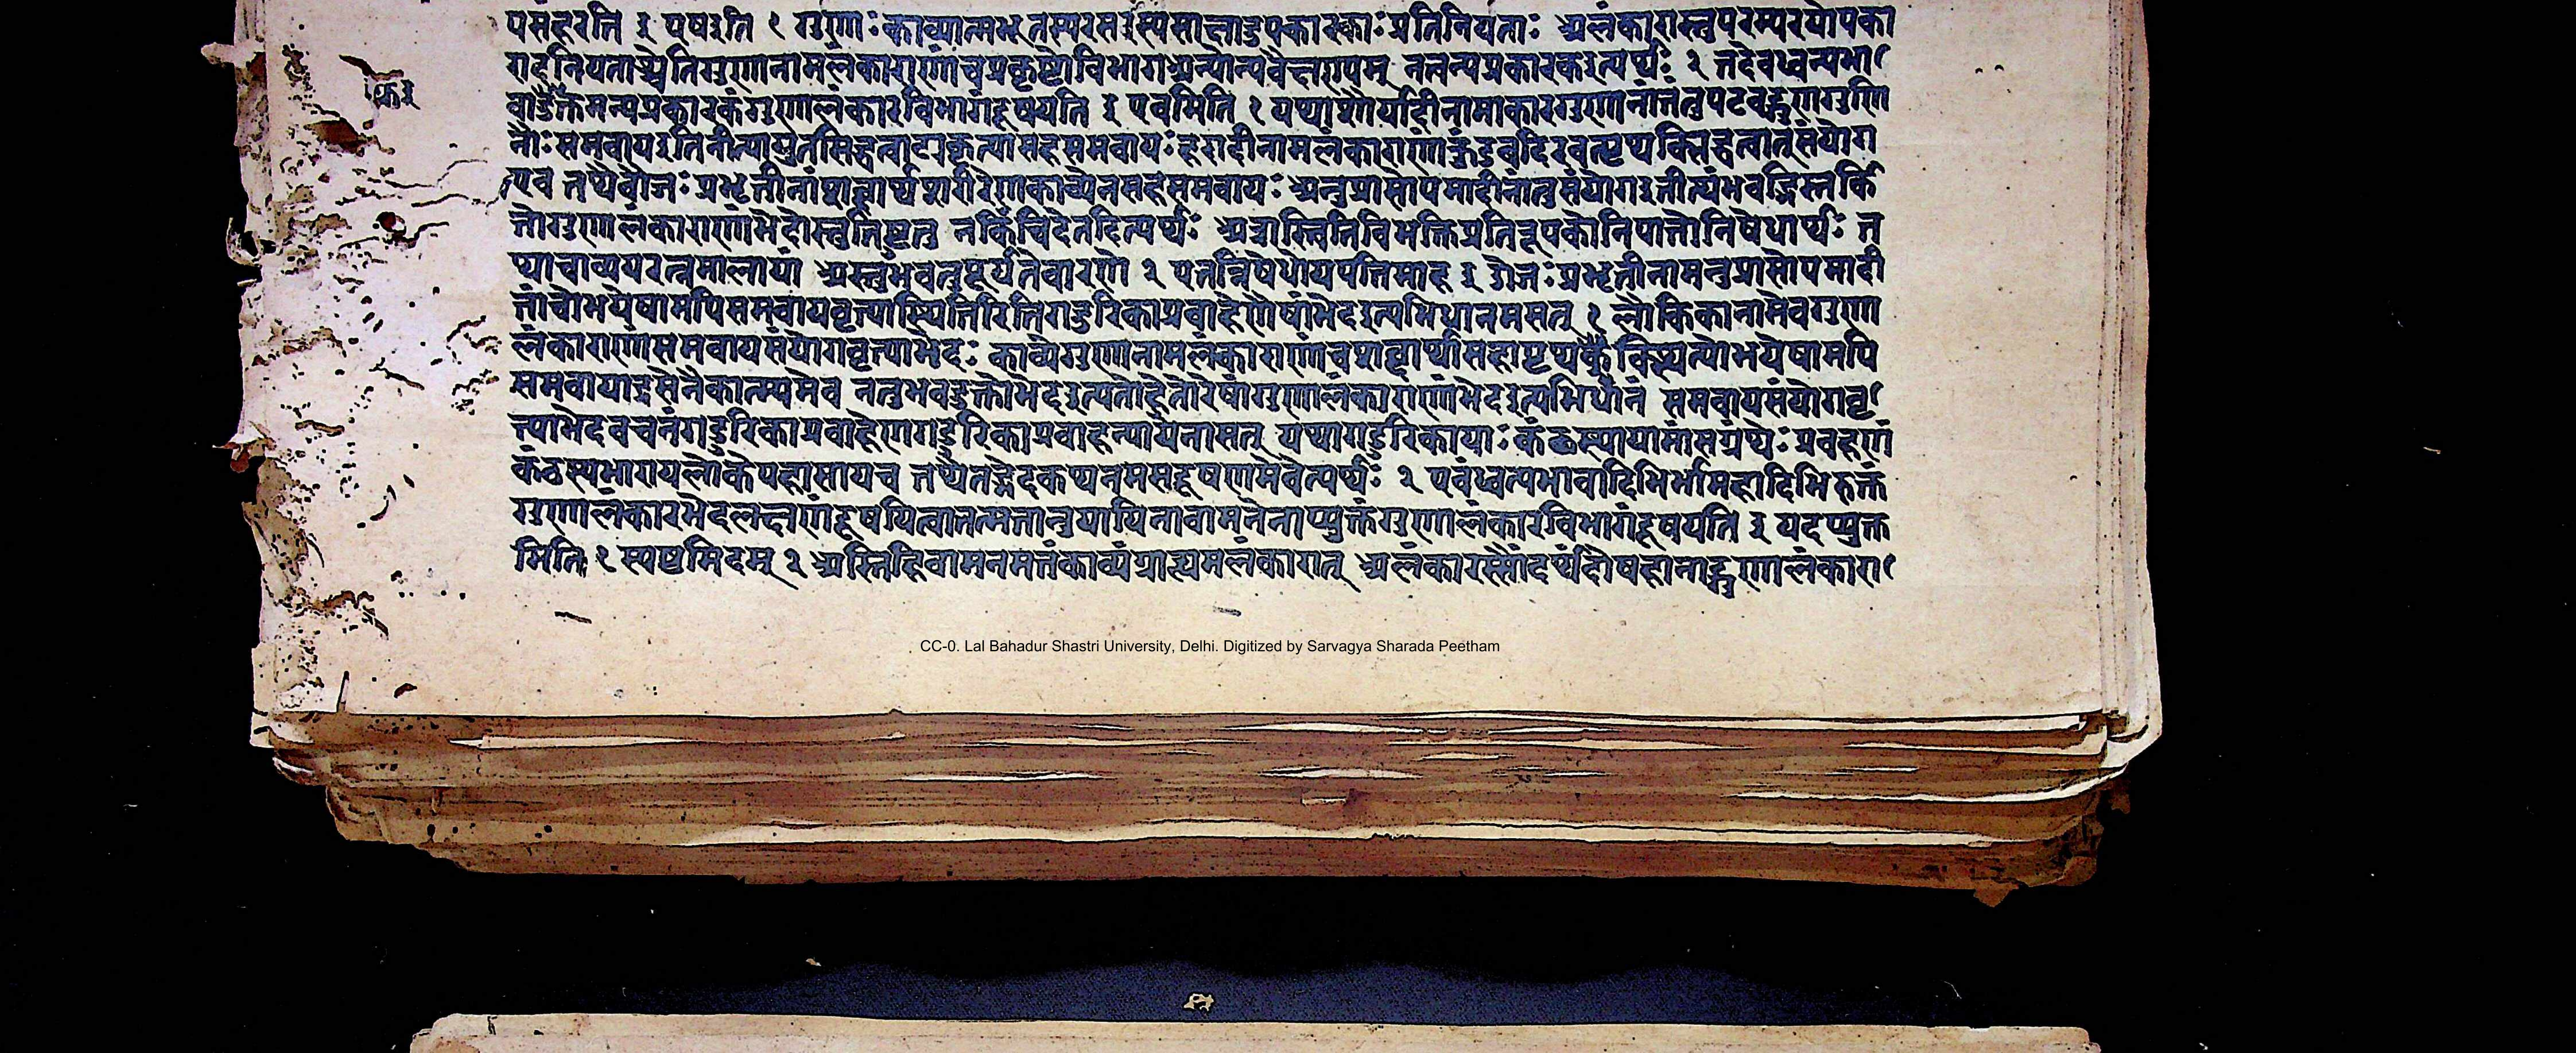 पसंहरति इ एषइति १ गुणाः काव्यात्मभूतस्यरसइस्यसाक्षादुपकारकाः प्रतिनियताः अलंकारास्तुपरम्परयोपका
रादनियताश्चेतिगुणानामलंकाराणांचप्रकृष्टोविभागअन्योन्यवैलक्षण्यम् नत्वन्यप्रकारकइत्यर्थः २ तदेवध्वन्यभा
वाद्युक्तमन्यप्रकारकंगुणालंकारविभागंदूषयति इ एवमिति १ यथाशौर्यादीनामाकारगुणानां
नोः समवायइति समवायः हारादीनामलंकाराणां संयोग
एव तथैवौजः प्रभृतीनांशब्दार्थशरीरेणकाव्येनसहसमवायः अनुप्रासोपमादीनांतुसंयोगइतीत्थंभवद्भिस्तर्कि
तोगुणालंकाराणांभेदोस्तुतिष्टतु नकिंचिदेतदित्यर्थः अत्रास्त्वितिविभक्तिप्रतिरूपकोनिपातोनिषेधार्थः त
थाचाव्ययरत्नमालायां अस्तुंभवतुपूर्यतेवारणे २ एतन्निषेधोपपत्तिमाह इ ओजः प्रभृतीनामनुप्रासोपमादी
नांचोभयेषामपिसमवायवृत्त्यास्थितिरितिगड्डरिकाप्रवाहेणैषांभेदइत्यभिधानमसत् १ लौकिकानामेवगुणा
लंकाराणांसमवायसंयोगवृत्त्याभेदः काव्येगुणानामलंकाराणांचशब्दार्थाभ्यां उभयेषामपि
समवायाङ्गसेनैकात्म्यमेव नतुभवदुक्तोभेदइत्यतोहेतोरेषांगुणालंकाराणांभेदइत्यभिधानं समवायसंयोगवृ
त्त्याभेदवचनंगड्डुरिकाप्रवाहेणगड्डुरिकाप्रवाहन्यायेनासत् यथागड्डुरिकायाः कंठस्थायामांसग्रंथेः प्रवहणं
कंठस्यभारायलोकोपहासायच तथैतद्भेदकथनमसद्दूषणमेवेत्यर्थः २ एवंध्वन्यभावादिभिर्भामहादिभिरुक्तं
गुणालंकारभेदलक्षणंदूषयित्वातन्मतानुयायिनावामनेनाप्युक्तंगुणालंकारविभागंदूषयति इ यदप्युक्त
मिति १ स्पष्टमिदम् २ अस्तिहिवामनमतंकाव्यंग्राह्यमलंकारात् अलंकारस्सौंदर्यंदोषहानाद्गुणालंकारा
CC-0. Lal Bahadur Shastri University, Delhi. Digitized by Sarvagya Sharada Peetham